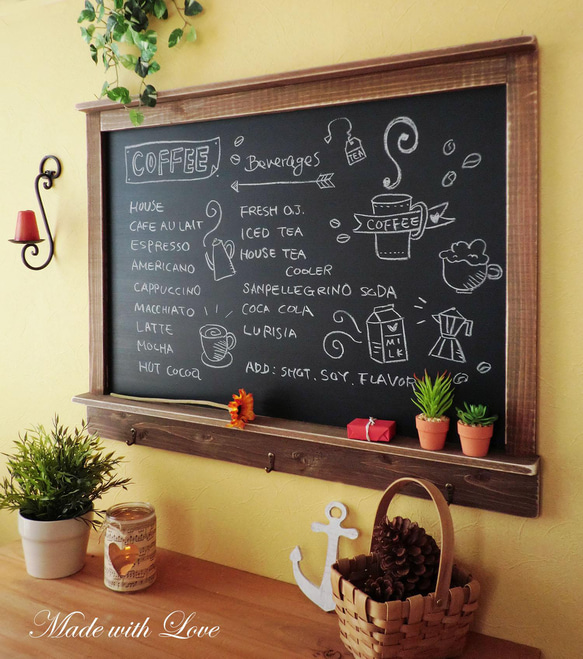 COFFEE
HOUSE
CAFE AU LAIT
ESPRESSO
AMERICANO
CAPPUCCINO
MACCHIATO
LATTE
MOCHA
HOT COCOA
Beverages
FRESH O.J.
ICED TEA
HOUSE TEA
COOLER
SANPELLEGRINO SODA
COCA COLA
LURISIA
ADD: SHOT. SOY. FLAVOR
TEA
COFFEE
MILK
Made with Love